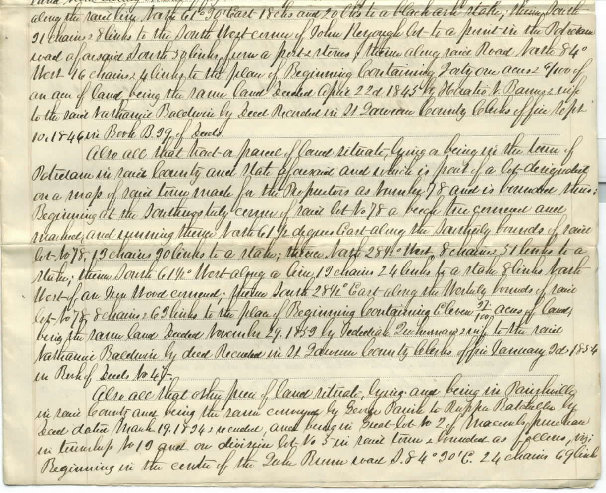 along the said line North 61° 30' East 18 chs and 20 lks to a black ash stake, thence South
21 chains 8 links to the South West corner of John Keyough lot to a point in the Potsdam
road aforesaid South 30 links from a post & stones, thence along said Road North 84°
West 46 chains & 4 links to the place of Beginning Containing Forty one acres & /100 of
an acre of land being the same land Deeded 22d 1845 by Horatio N. & wife
to the said Nathaniel Baldwin by Deed Recorded in St Lawrence County Clerks office Sept
10, 1846 in Book B. 39 of Deeds
Also all that tract or parcel of land situate, lying & being in the town of
Potsdam in said County and State aforesaid and which is part of a lot designated
on a map of said town made for the Proprietors as number 78 and is bounded thus;
Beginning at the Southwesterly corner of said lot No 78 a beech tree cornered and
marked, and running thence North 61½ degrees East along the Southerly bounds of said
lot No 78, 13 chains 30 links to a stake; thence North 28½° West 8 chains 51 links to a
stake; thence South 61½° West along a line, 13 chains 24 links to a stake 8 links North
West of an Iron Wood cornered; thence South 28½° East along the Westerly bounds of said
lot No 78, 8 chains & 63 links to the place of Beginning Containing Eleven 37/100 acres of land,
being the same land Deeded November 29, 1853 by Jedediah & wife to the said
Nathaniel Baldwin by deed Recorded in St Lawrence County Clerks office January 3d 1854
in Book of Deeds No 47.
Also all that other piece of land situate, lying and being in
in said County and being the same conveyed by George to by
Deed dated March 19, 1834 & recorded, and being in Great lot No 2 of Macomb's purchase
in township No 13 and on division lot No 5 in said town & bounded as follows, viz;
Beginning in the centre of the road S. 84° 30' E. 24 chains 69 links